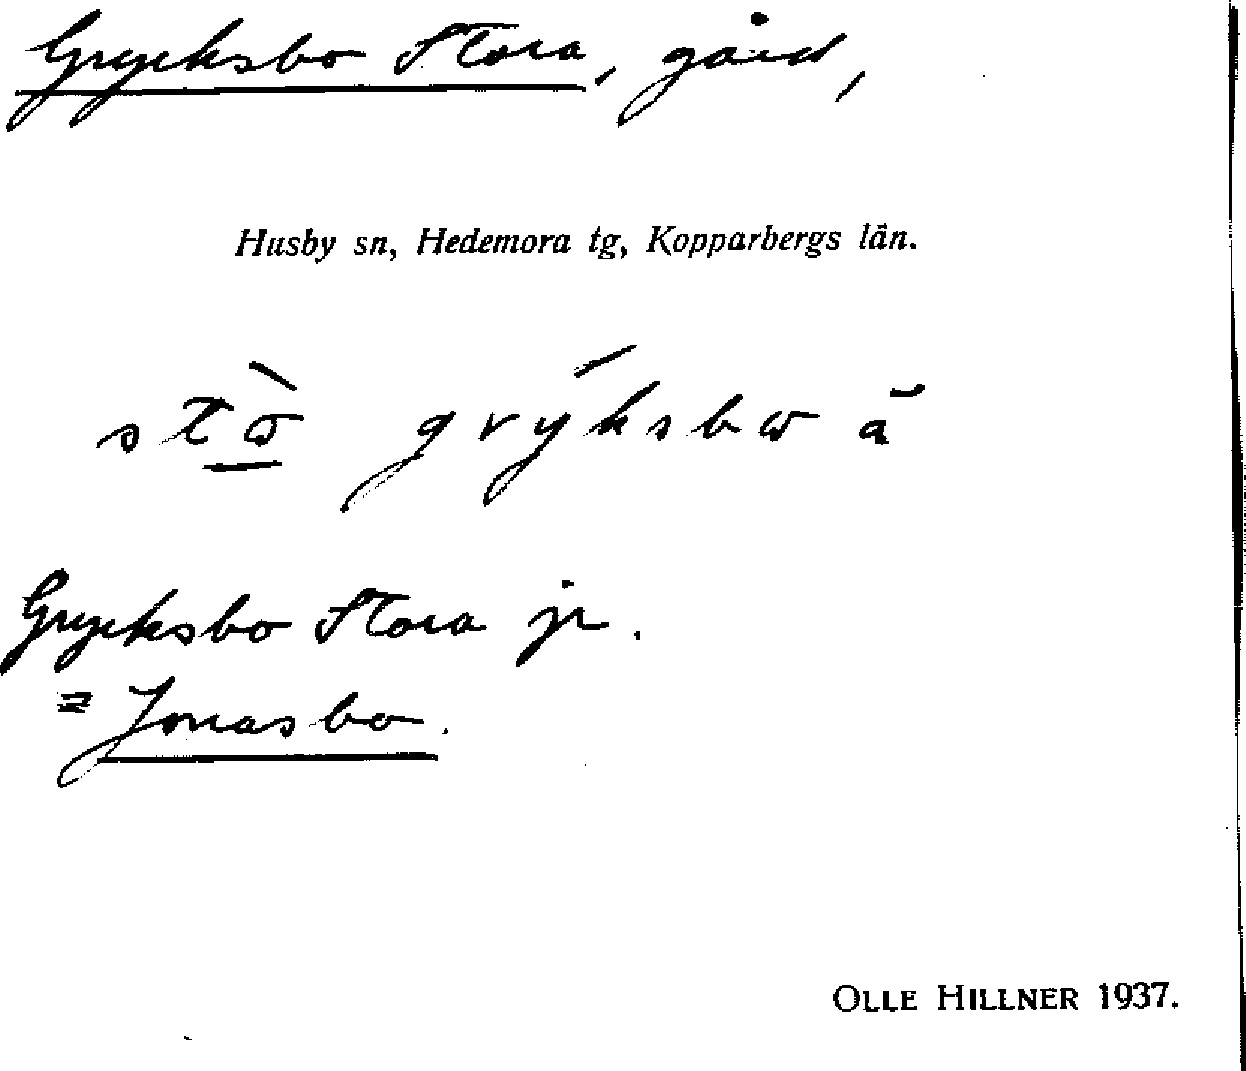 Grycksbo Stora, gård,
Husby sn, Hedemora tg, Kopparbergs län.
stɷ̀ grýksbɷ ā
Grycksbo Stora jr.
= Jonasbo.
OLLE HILLNER 1937.